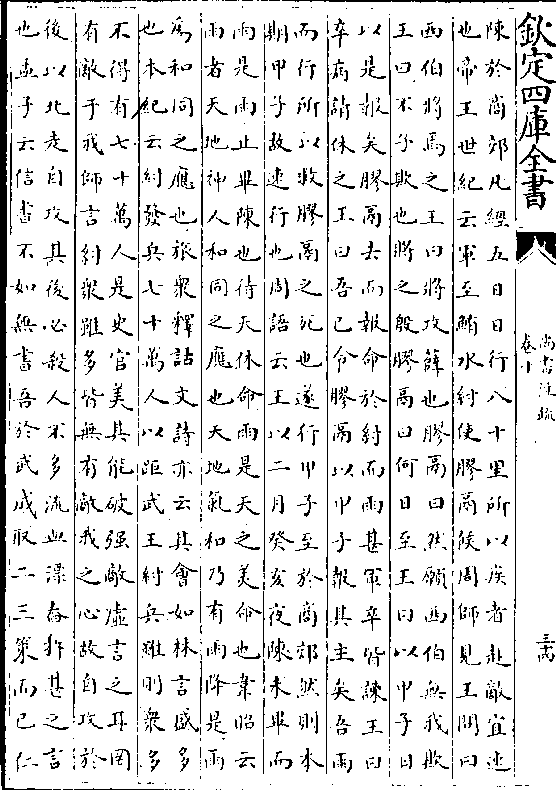 欽定四庫全書
尚書注疏
卷十
陳於商郊凡經五日日行八十里所以疾者赴敵宜速
也帝王世紀云軍至鮪水紂使膠鬲候周師見王問曰
西伯將焉之王曰將攻薛也膠鬲曰然願西伯無我欺
王曰不子欺也將之殷膠鬲曰何日至王曰以甲子日
以是報矣膠鬲去而報命於紂而雨甚軍卒皆諫王曰
卒病請休之王曰吾已令膠鬲以甲子報其主矣吾雨
而行所以救膠鬲之死也遂行甲子至於商郊然則本
期甲子故速行也周語云王以二月癸亥夜陳未畢而
雨是雨止畢陳也待天休命雨是天之美命也韋昭云
雨者天地神人和同之應也天地氣和乃有雨降是雨
為和同之應也旅衆釋詁文詩亦云其會如林言盛多
也本紀云紂發兵七十萬人以距武王紂兵雖則衆多
不得有七十萬人是史官美其能破强敵虛言之耳罔
有敵于我師言紂衆雖多皆無有敵我之心故自攻於
後以北走自攻其後必殺人不多流血漂舂杵甚之言
也孟子云信書不如無書吾於武成取二三策而已仁